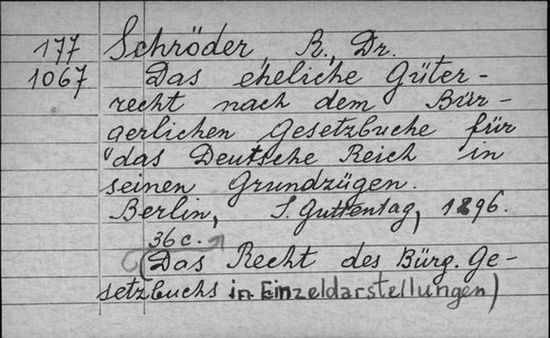 177 Schröder, R., Dr.
1067 Das eheliche Güter-
recht nach dem Bür-
gerlichen Gesetzbuche für
das Deutsche Reich in
seinen Grundzügen.
Berlin, J. Guttentag, 1896.
36 c.
(Das Recht des Bürg. Ge-
setzbuchs in Einzeldarstellungen)